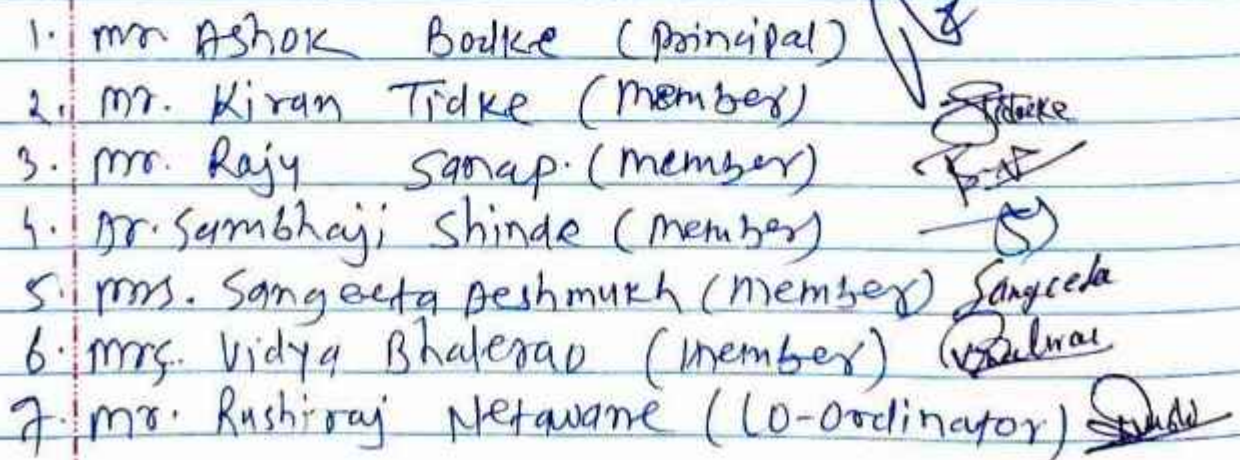 1. mr Ashok Bodke (principal)
2. mr. Kiran Tidke (member) Tidke
3. mr. Raju Sanap. (member)
4. Dr. Sambhaji Shinde (member)
5. mrs. Sangeeta Deshmukh (member) Sangeeta
6. mrs. Vidya Bhalerao (member)
7. mr. Rushiraj Netawane (Co-Ordinator)